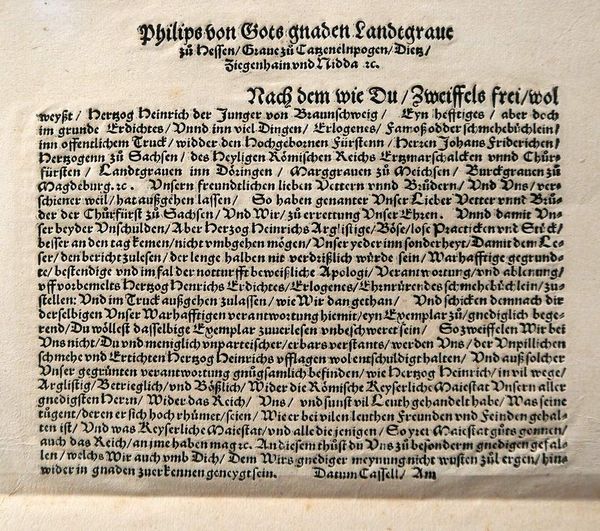 Philips von Gots gnaden Landtgraue
zů Hessen / Graue zů Catzenelnpogen / Dietz /
Ziegenhain vnd Nidda ꝛc.
Nach dem wie Du / Zweiffels frei / wol
weyßt / Hertzog Heinrich der Junger von Braunschweig / Eyn hefftiges / aber doch
im grunde Erdichtes / Vnnd inn viel Dingen / Erlogenes / Famoß odder schmehebüchlein /
inn offentlichem Truck / widder den Hochgebornen Fürstenn / Herren Johans Friderichen /
Hertzogenn zů Sachsen / des Heyligen Römischen Reichs Ertzmarschalcken vnnd Chür⸗
fürsten / Landtgrauen inn Döringen / Marggrauen zů Meichsen / Burckgrauen zů
Magdeburg.ꝛc. Vnsern freundtlichen lieben Vettern vnnd Brüdern / Vnd Vns / ver⸗
schiener weil / hat außgehen lassen / So haben genanter Vnser Lieber Vetter vnnt Brů⸗
der der Chürfürst zů Sachsen / Vnd Wir / zů errettung Vnser Ehren. Vnnd damit Vn⸗
ser beyder Vnschulden / Aber Hertzog Heinrichs Arglistige / Böse / lose Practicken vnd Stück /
besser an den tag kemen / nicht vmbgehen mögen / Vnser yeder im sonderheyt / Damit dem Le⸗
ser / den bericht zulesen / der lenge halben nit verdrißlich würde sein / Warhafftige gegrund⸗
te / bestendige vnd im fal der notturfft beweißliche Apologi / Verantwortung / vnd ablenung /
vff vorbemelts Hertzog Henrichs Erdichtes / Erlogenes / Ehrnrürendes schmehebüchlein / zu⸗
stellen: Vnd im Truck außgehen zulassen / wie Wir dan gethan / Vnd schicken demnach dir
derselbigen Vnser Warhafftigen verantwortung hiemit / eyn Exemplar zů / gnediglich bege⸗
rend / Du wöllest dasselbige Exemplar zuuerlesen vnbeschwert sein / So zweiffelen Wir bei
Vns nicht / Du vnd meniglich vnparteischer / erbars verstants / werden Vns / der Vnpillichen
schmehe vnd Ertichten Hertzog Heinrichs vfflagen wol entschuldigt halten / Vnd auß solcher
Vnser gegrünten verantwortung gnůgsamlich befinden / wie Hertzog Heinrich / in vil wege /
Arglistig / Betrieglich / vnd Bößlich / Wider die Römische Keyserliche Maiestat Vnsern aller
gnedigsten Herrn / Wider das Reich / Vns / vnd sunst vil Leuth gehandelt habe / Was seine
tügent / deren er sich hoch rhümet / seien / Wie er bei vilen leuthen Freunden vnd Feinden gehal⸗
ten ist / Vnd was Keyserliche Maiestat / vnd alle die jenigen / So yrer Maiestat gůts gonnen /
auch das Reich / an jme haben mag ꝛc. An diesem thůst du Vns zů besonderm gnedigen gefal⸗
len / welchs Wir auch vmb Dich / Dem Wirs gnediger meynung nicht wusten zůl ergen / hin⸗
wider in gnaden zuerkennen geneygt sein. Datum Cassell / Am